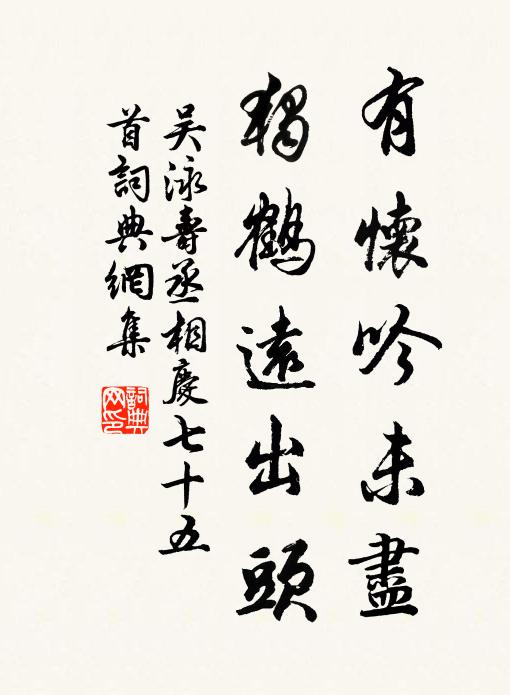 有懷吟未盡
獨鶴遠出頭
吴泳壽丞相慶七十五
首詞典網集
詞典
网印